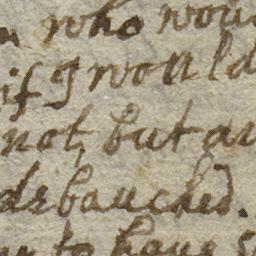 who wou
if I would
not, but ar
debauched.
to have s